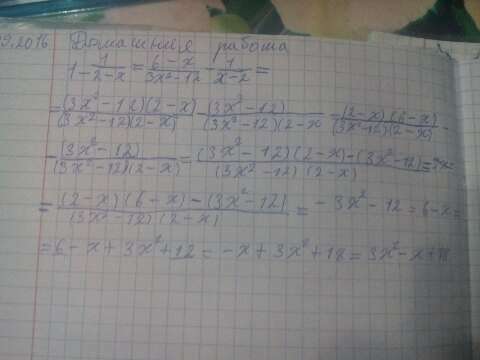 9.2016 Домашняя работа
1 - 1/(2-x) = (6-x)/(3x²-12) - 1/(x-2) =
= (3x²-12)(2-x)/((3x²-12)(2-x)) - (3x²-12)/((3x²-12)(2-x) - (2-x)(6-x)/((3x²-12)(2-x)) -
- (3x²-12)/((3x²-12)(2-x)) = ((3x²-12)(2-x)-(3x²-12))/((3x²-12)(2-x)) =
= ((2-x)(6-x)-(3x²-12))/((3x²-12)(2-x)) = -3x²-12 = 6-x =
= 6-x+3x²+12 = -x+3x²+18 = 3x²-x+18